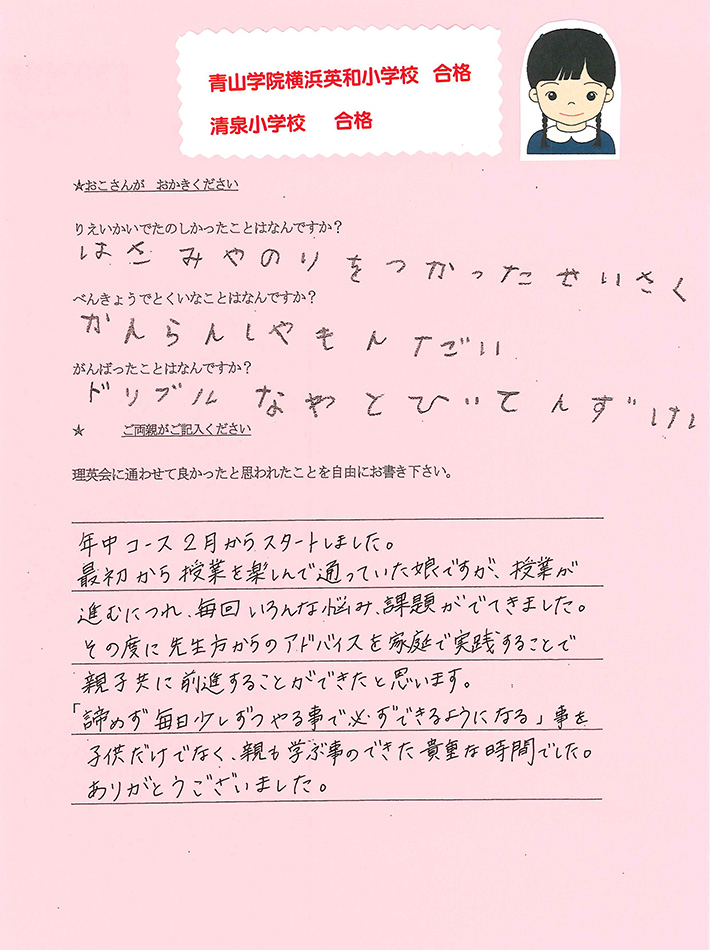 青山学院横浜英和小学校 合格
清泉小学校 合格
★おこさんが おかきください
りえいかいでたのしかったことはなんですか?
はさみやのりをつかったせいさく
べんきょうでとくいなことはなんですか?
かんらんしやもんすごい
がんばったことはなんですか?
ドリブルなわとびいてんずけい
★ ご両親がご記入ください
理英会に通わせて良かったと思われたことを自由にお書き下さい。
年中コース2月からスタートしました。
最初から授業を楽しんで通っていた娘ですが、授業が
進むにつれ、毎回いろんな悩み、課題がでてきました。
その度に先生方からのアドバイスを家庭で実践することで
親子共に前進することができたと思います。
「諦めず毎日少しずつやる事で必ずできるようになる」事を
子供だけでなく、親も学ぶ事のできた貴重な時間でした。
ありがとうございました。